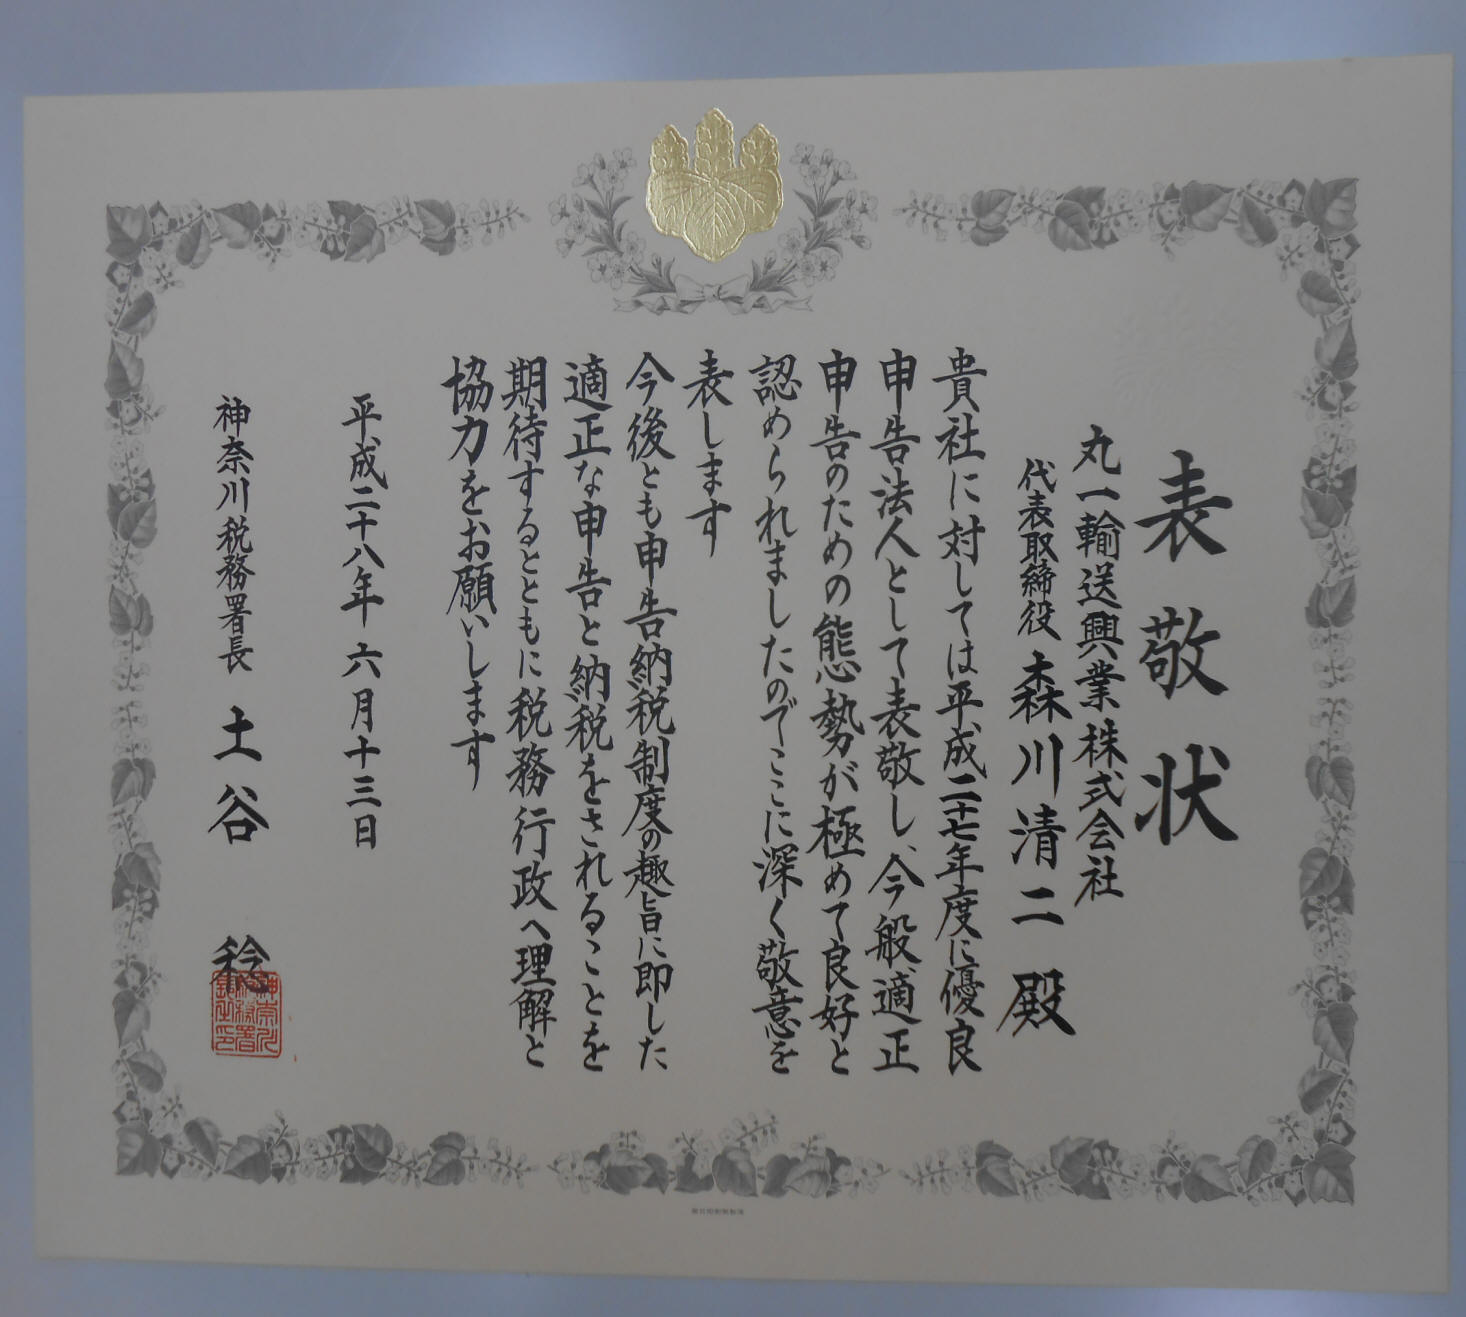 表敬状
丸一輸送興業株式会社
代表取締役 森川清二 殿
貴社に対しては平成二十七年度に優良
申告法人として表敬し、今般適正
申告のための態勢が極めて良好と
認められましたのでここに深く敬意を
表します
今後とも申告納税制度の趣旨に即した
適正な申告と納税をされることを
期待するとともに税務行政へ理解と
協力をお願いします
平成二十八年 六月十三日
神奈川税務署長 土谷 稔